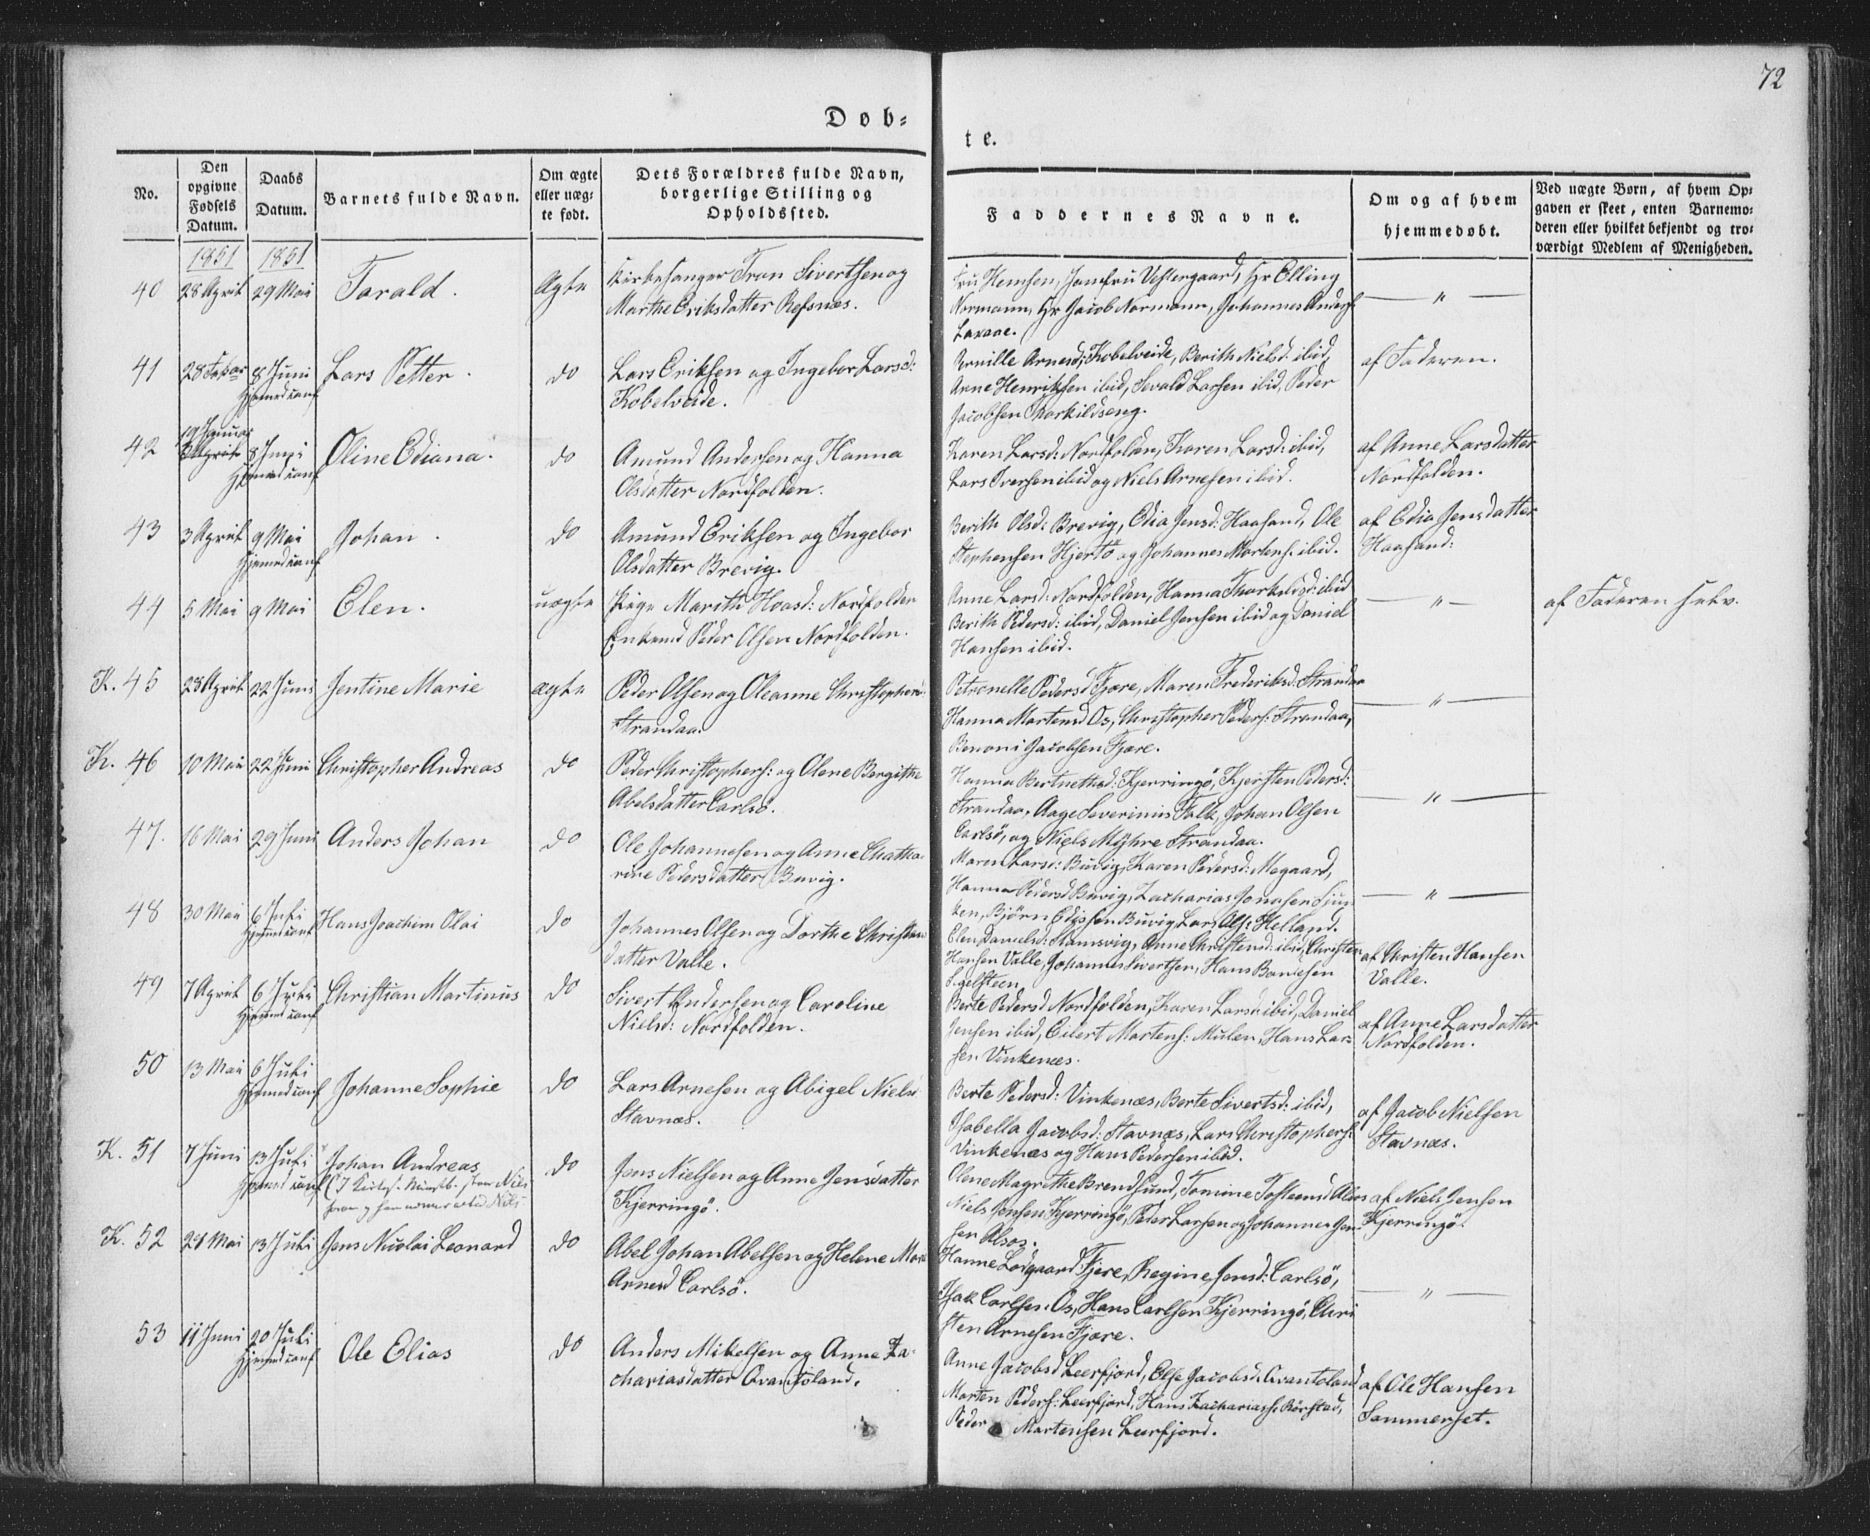 72
Døb-
te.
No.
Den opgivne Fødsels Datum.
Daabs Datum.
Barnets fulde Navn.
Om ægte eller uægte født.
Dets Forældres fulde Navn, borgerlige Stilling og Opholdssted.
Faddernes Navne.
Om og af hvem hjemmedøbt.
Ved uægte Børn, af hvem Opgaven er skeet, enten Barnemoderen eller hvilket bekjendt og troværdigt Medlem af Menigheden.
1851 1851
40 28 April 29 Mai Tarald. Ægte Kirkesanger Tron Sivertsen og
Marthe Eriksdatter Rosnæs.
Fru Hemsen, Jomfru Vestergaard, Hr Elling
Normann, Hr Jacob Normann, Johannes Anders:
Laxaae.
— " —
41 28 Febar 8 Juni Lars Petter. do Lars Eriksen og Ingebor Larsd:
Hjemed conf Kobelveide.
Pernille Arnesd: Kobelveide, Berith Nielsd: ibid,
Anne Henriksen ibid, Sevald Larsen ibid, Peder
Jacobsen Thorkildseng.
af Faderen.
42 19 Januar 8 Juni Oline Ediana. do Amund Andersen og Hanna
Hjemed conf Olsdatter Nordfolden.
Karen Larsd: Nordfolden, Karen Larsd: ibid,
Lars Iversen ibid og Niels Arnesen ibid.
af Anne Larsdatter
Nordfolden.
43 3 April 9 Mai Johan. do Amund Eriksen og Ingebor
Hjemed conf Olsdatter Brevig.
Berith Olsd: Brevig, Edia Jensd: Haasand, Ole
Stephensen Hjertø og Johannes Mortens: ibid.
af Edia Jensdatter
Haasand:
44 5 Mai 9 Mai Elen. uægte Pige Marith Hoasd: Nordfolden
Enkemd Peder Olsen Nordfolden.
Anne Larsd: Nordfolden, Hanna Thorkildsd: ibid
Berith Pedersd: ibid, Daniel Jensen ibid og Daniel
Hansen ibid.
— " —
af Faderen selv.
K. 45 23 April 22 Juni Jentine Marie ægte Peder Olsen og Oleanne Christophersd
Strandaa.
Petronelle Pedersd Fjære, Maren Frederiksd: Strandaa
Hanna Martensd Os, Christopher Peders: Strandaa,
Benoni Jacobsen Fjære.
— " —
K. 46 10 Mai 22 Juni Christopher Andreas do Peder Christophers: og Olene Bergithe
Abelsdatter Carlsø.
Hanna Bertnethsd: Kjerringø, Kjersten Pedersd:
Strandaa, Aage Severinus Falk, Johan Olsen
Carlsø, og Niels Myhre Strandaa.
— " —
47. 16 Mai 29 Juni Anders Johan do Ole Johannesen og Anne Catha-
rine Pedersdatter Buvig.
Maren Larsd: Buvig, Karen Pedersd: Møgaard,
Hanna Pedersd Buvig, Zacharias Jonasen Sjun
ken, Bjørn Edissen Buvig, Lars Ols: Helland.
— " —
48 30 Mai 6 Juli Hans Joachim Olai do Johannes Olsen og Dorthe Christens
Hjemed conf datter Valle.
Elen Danielsd: Stamsvig, Anne Christensd: ibid, Christen
Hansen Valle, Johannes Sivertsen, Hans Bendsen
Sigelsteen
af Christen Hansen
Valle.
49 7 April 6 Juli Christian Martinus do Sivert Andersen og Caroline
Hjemed conf Nielsd: Nordfolden.
Berte Pedersd Nordfolden, Karen Larsd: ibid, Daniel
Jensen ibid, Eilert Martens: Mulen, Hans Lar-
sen Vinkenæs.
af Anne Larsdatter
Nordfolden.
50 13 Mai 6 Juli Johanne Sophie do Lars Arnesen og Abigel Nielsd
Hjemed conf Stavnæs.
Berte Pedersd: Vinkenæs, Berte Sivertsd: ibid,
Isabella Jacobsd: Stavnæs, Lars Christophers:
Vinkenæs og Hans Pedersen ibid.
af Jacob Nielsen
Stavnæs.
K. 51 7 Juni 13 Juli Johan Andreas do Jens Nielsen og Anne Jensdatter
Hjemed conf Kjerringø.
Olene Magrethe Brendsund, Tomine Tostensd Alsos
Niels Jensen Kjerringø, Peder Larsen og Johannes Jen-
sen Alsos.
af Niels Jensen
Kjerringø.
K. 52 28 Mai 13 Juli Jens Nicolai Leonard do Abel Johan Abelsen og Helene Mar:
Arnesd Carlsø.
Hanne Lødgaard Fjere, Regine Jensd: Carlsø,
Isak Carlsen: Os, Hans Carlsen Kjerringø, Chri
sten Arnesen Fjære.
— " —
53 11 Juni 20 Juli Ole Elias do Anders Mikelsen og Anne Za-
Hjemed conf chariasdatter Qvantoland.
Anne Jacobsd Leerfjord, Else Jacobsd: Qvantoland
Morten Peders: Leerfjord, Hans Zacharias: Rørstad,
Peder Martensen Leerfjord.
af Ole Hansen
Sommerset.